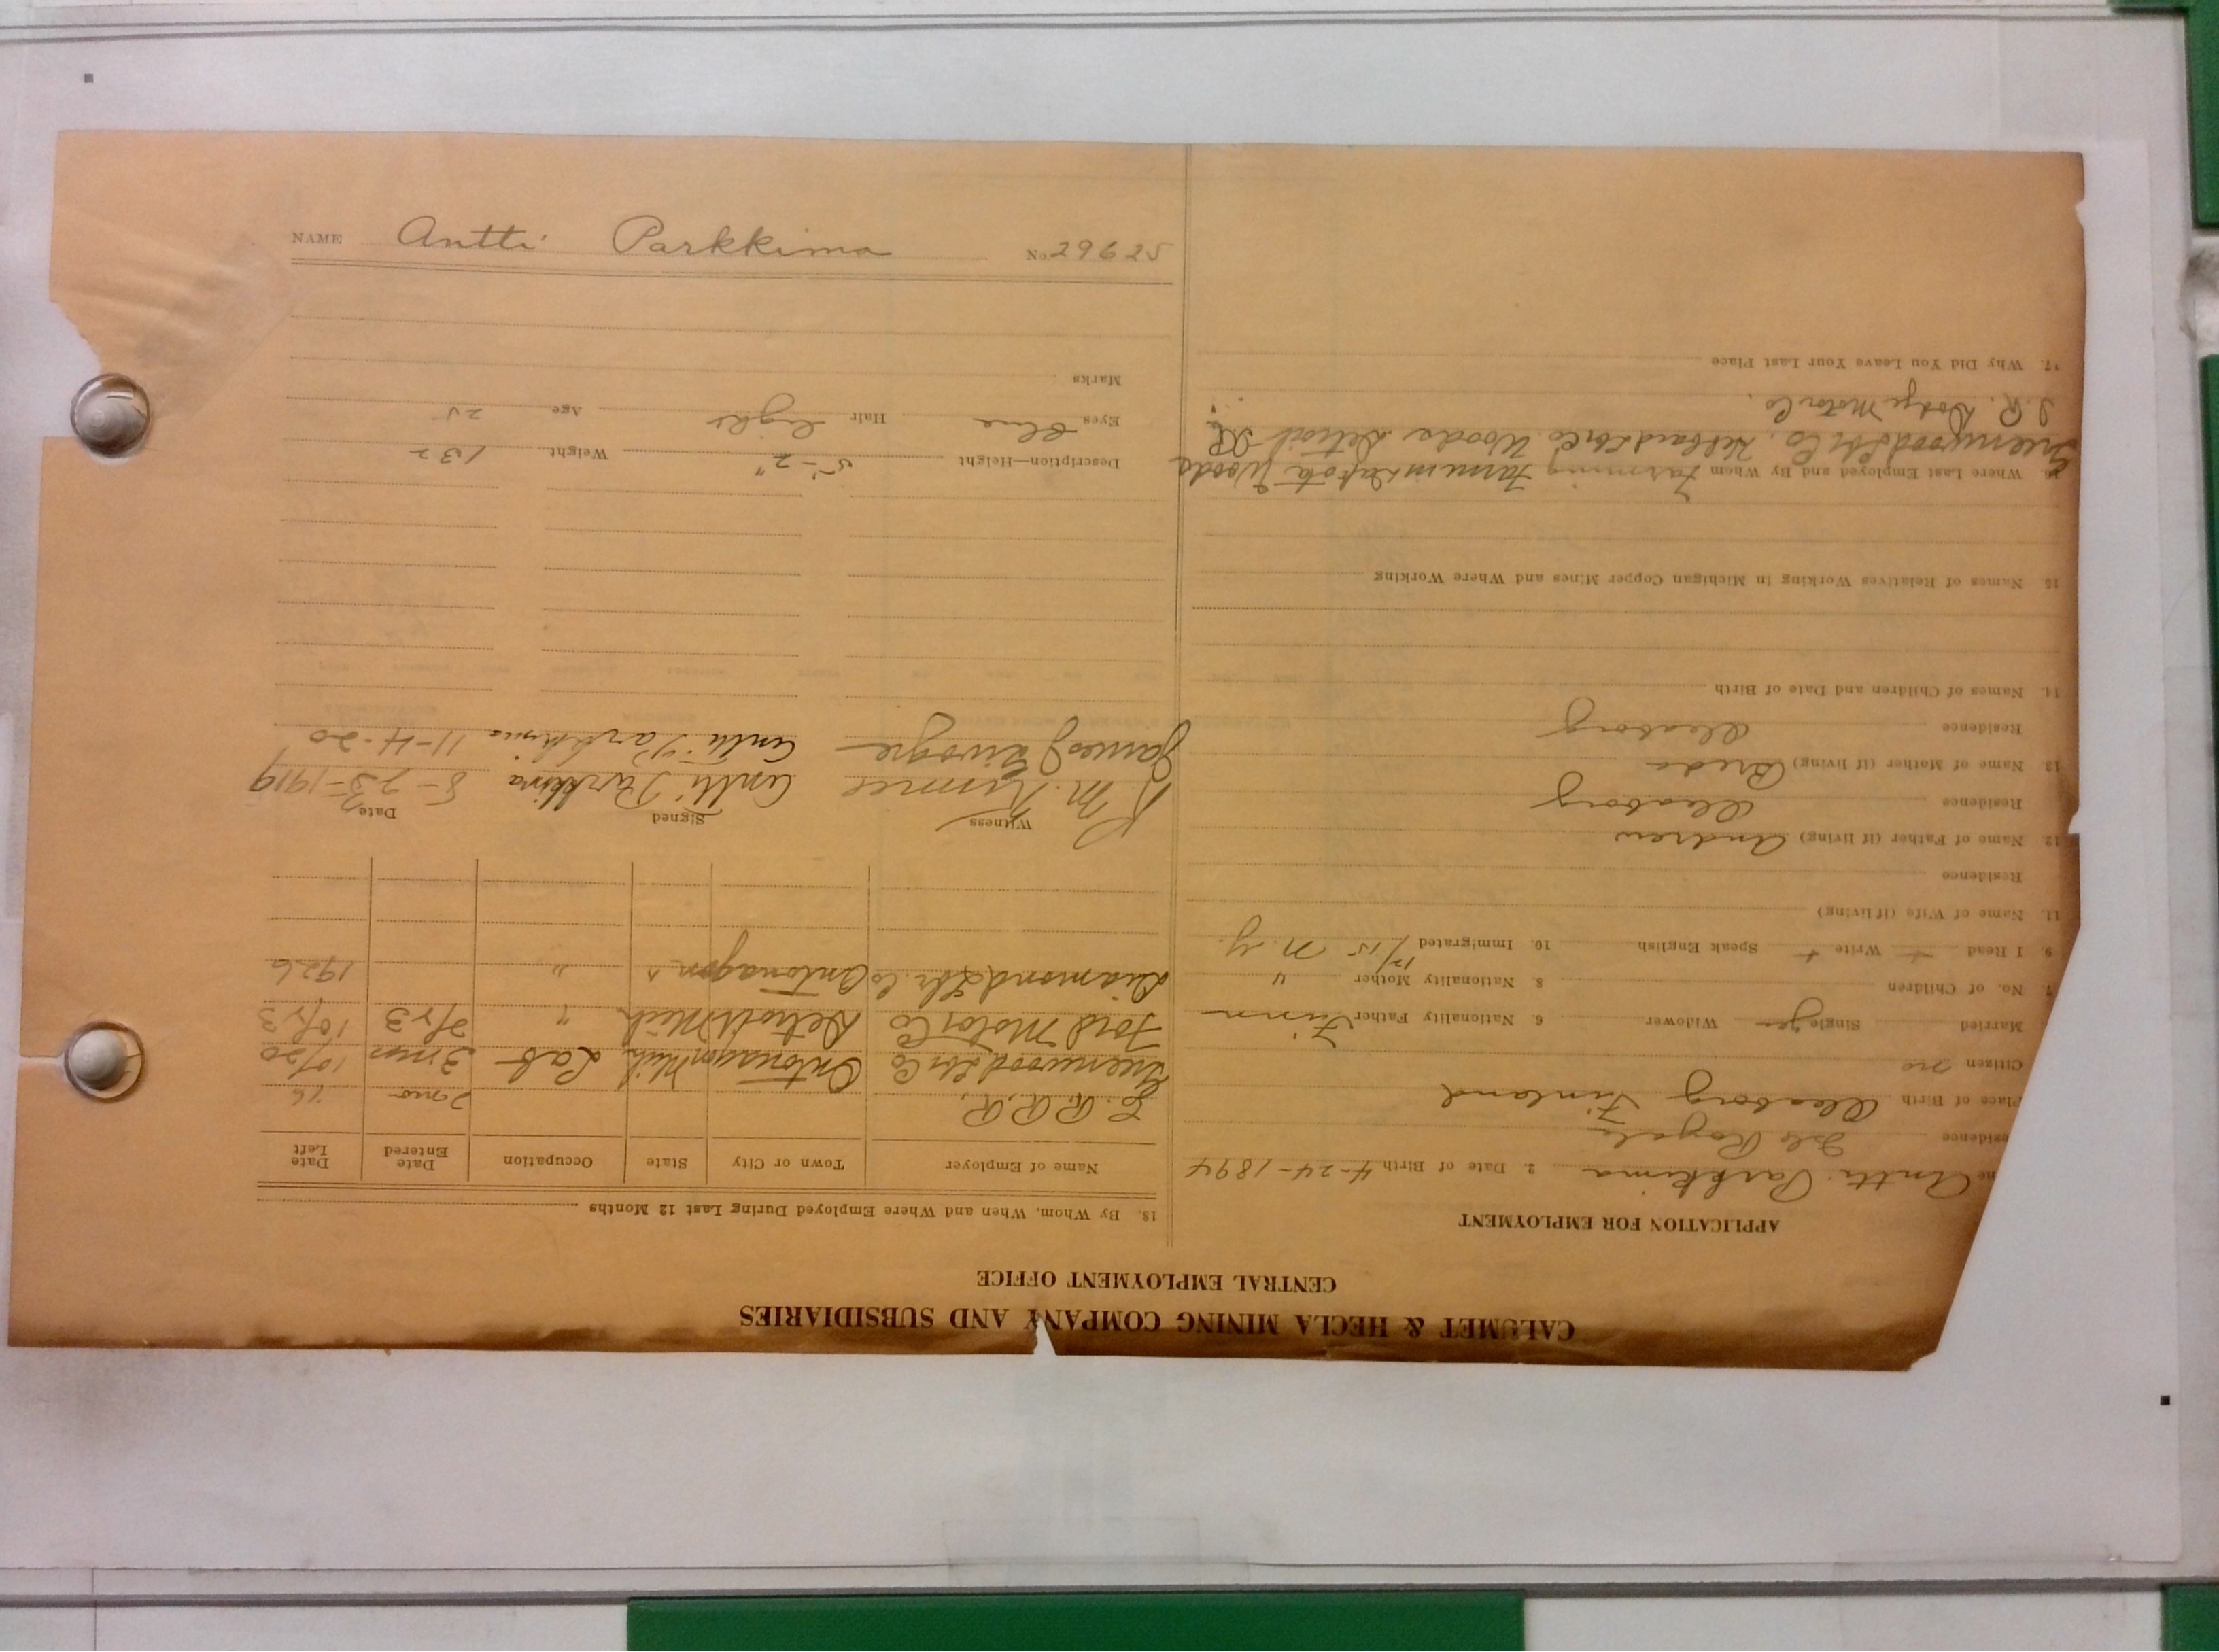 NAME Antti Parkkima No. 29625
CALUMET & HECLA MINING COMPANY AND SUBSIDIARIES
CENTRAL EMPLOYMENT OFFICE
APPLICATION FOR EMPLOYMENT
me Antti Parkkima 2. Date of Birth 4-24-1894
esidence Isle Royale
Place of Birth Uleaborg Finland
Citizen no
Married Single yes Widower 6. Nationality Father Finn
7. No. of Children 8. Nationality Mother "
9. I Read + Write + Speak English 10. Immigrated 12/15 N.Y.
11. Name of Wife (if living)
Residence
12. Name of Father (if living) Andrew
Residence Uleaborg
13. Name of Mother (if living) Breda
Residence Uleaborg
14. Names of Children and Date of Birth
15 Names of Relatives Working in Michigan Copper Mines and Where Working
16. Where Last Employed and By Whom Farming Farm in Woods
Greenwood Lbr Co. Woods Detroit
I.R. Dodge Motor Co.
17. Why Did You Leave Your Last Place
18. By Whom, When and Where Employed During Last 12 Months
Name of Employer Town or City State Occupation Date Entered Date Left
R.R. 2 mo 16
Greenwood Lbr Co Ontonagon Mich Lab 3 mos 10/20
Ford Motor Co Detroit Mich " 2/23 10/23
Diamond Lbr. Co Ontonagon " " 1926
Witness Signed Date
M. Antti Parkkima 8-23-1919
James Antti Parkkima 11-4-20
Description—Height 5'-2" Weight 132
Eyes Blue Hair Light Age 25
Marks